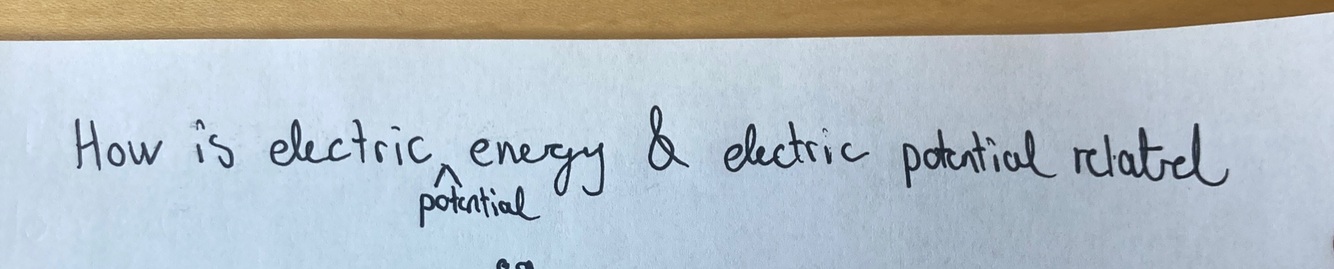 How is electric energy & electric potential related
potential